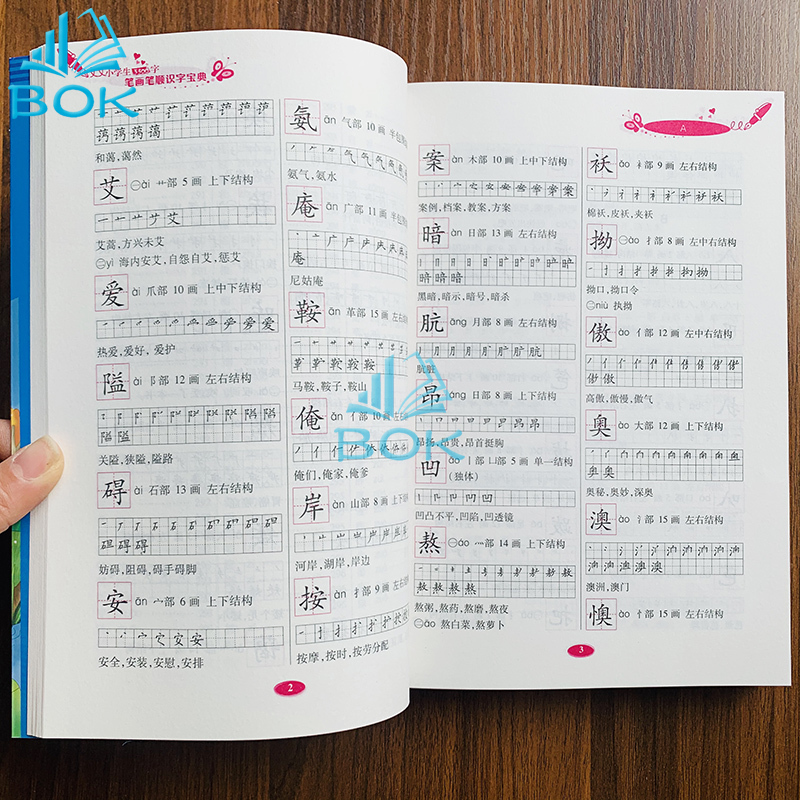 BOK
小学生
字
笔画笔顺识字宝典
和蔼,蔼然
艾 ㊀ài 艹部 5 画 上下结构
艾蒿,方兴未艾
㊁yì 海内安艾,自怨自艾,惩艾
爱 ài 爪部 10 画 上中下结构
热爱,爱好,爱护
隘 ài 阝部 12 画 左右结构
关隘,狭隘,隘路
碍 ài 石部 13 画 左右结构
妨碍,阻碍,碍手碍脚
安 ān 宀部 6 画 上下结构
安全,安装,安慰,安排
2
氨 ān 气部 10 画
氨气,氨水
庵 ān 广部 11 画
尼姑庵
鞍 ān 革部 15 画 左右
马鞍,鞍子,鞍山
俺 ǎn 亻部 10 画 左右
俺们,俺家,俺爹
岸 àn 山部 8 画 上下
河岸,湖岸,岸边
按 àn 扌部 9 画 左右
按摩,按时,按劳分配
A
案 àn 木部 10 画 上中下结构
案例,档案,教案,方案
暗 àn 日部 13 画 左右结构
黑暗,暗示,暗号,暗杀
肮 āng 月部 8 画 左右结构
肮脏
昂 áng 日部 8 画 上下结构
昂扬,昂贵,昂首挺胸
BOK
凹 āo 丨部凵部 5 画 单一结构
(独体)
凹凸不平,凹陷,凹透镜
熬 ㊀áo 灬部 14 画 上下结构
熬粥,熬药,熬磨,熬夜
㊁āo 熬白菜,熬萝卜
袄 ǎo 衤部 9 画 左右结构
棉袄,皮袄,夹袄
拗 ㊀ào 扌部 8 画 左中右结构
拗口,拗口令
㊁niù 执拗
傲 ào 亻部 12 画 左中右结构
高傲,傲慢,傲气
奥 ào 大部 12 画 上下结构
奥秘,奥妙,深奥
澳 ào 氵部 15 画 左右结构
澳洲,澳门
懊 ào 忄部 15 画 左右结构
3
BOK